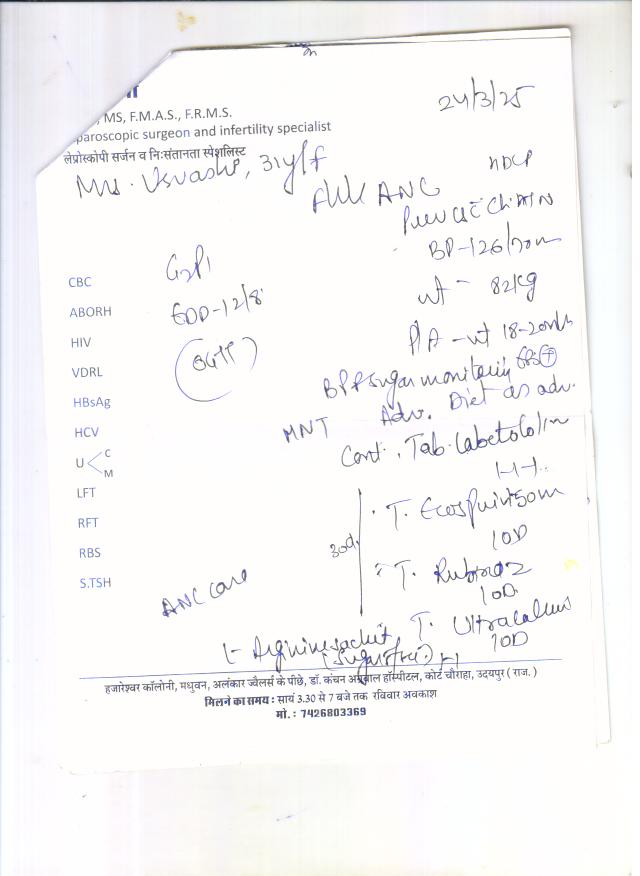 MS, F.M.A.S., F.R.M.S.
paroscopic surgeon and infertility specialist
लेप्रोस्कोपी सर्जन व निःसंतानता स्पेशलिस्ट
24/3/25
Mrs. Urvashi, 31y/f
ANC
BP-126/70
G2P1
wt - 82kg
CBC
ABORH
EDD-12/8
P/A - ut 18-20wks
HIV
OGTT
VDRL
BP & Sugar monitoring
HBsAg
Adv. Diet as adv.
HCV
MNT
Cont. Tab. Labetolol
1-1-1
U C
M
LFT
T. Ecosprin 150m
1OD
RFT
30d
RBS
T.
1OD
S.TSH
ANC care
T.
1OD
L-Arginine sachet
(Sugarfree) 1-1
हजारेश्वर कॉलोनी, मधुवन, अलंकार ज्वैलर्स के पीछे, डॉ. कंचन अग्रवाल हॉस्पीटल, कोर्ट चौराहा, उदयपुर ( राज. )
मिलने का समय : सायं 3.30 से 7 बजे तक रविवार अवकाश
मो. : 7426803369